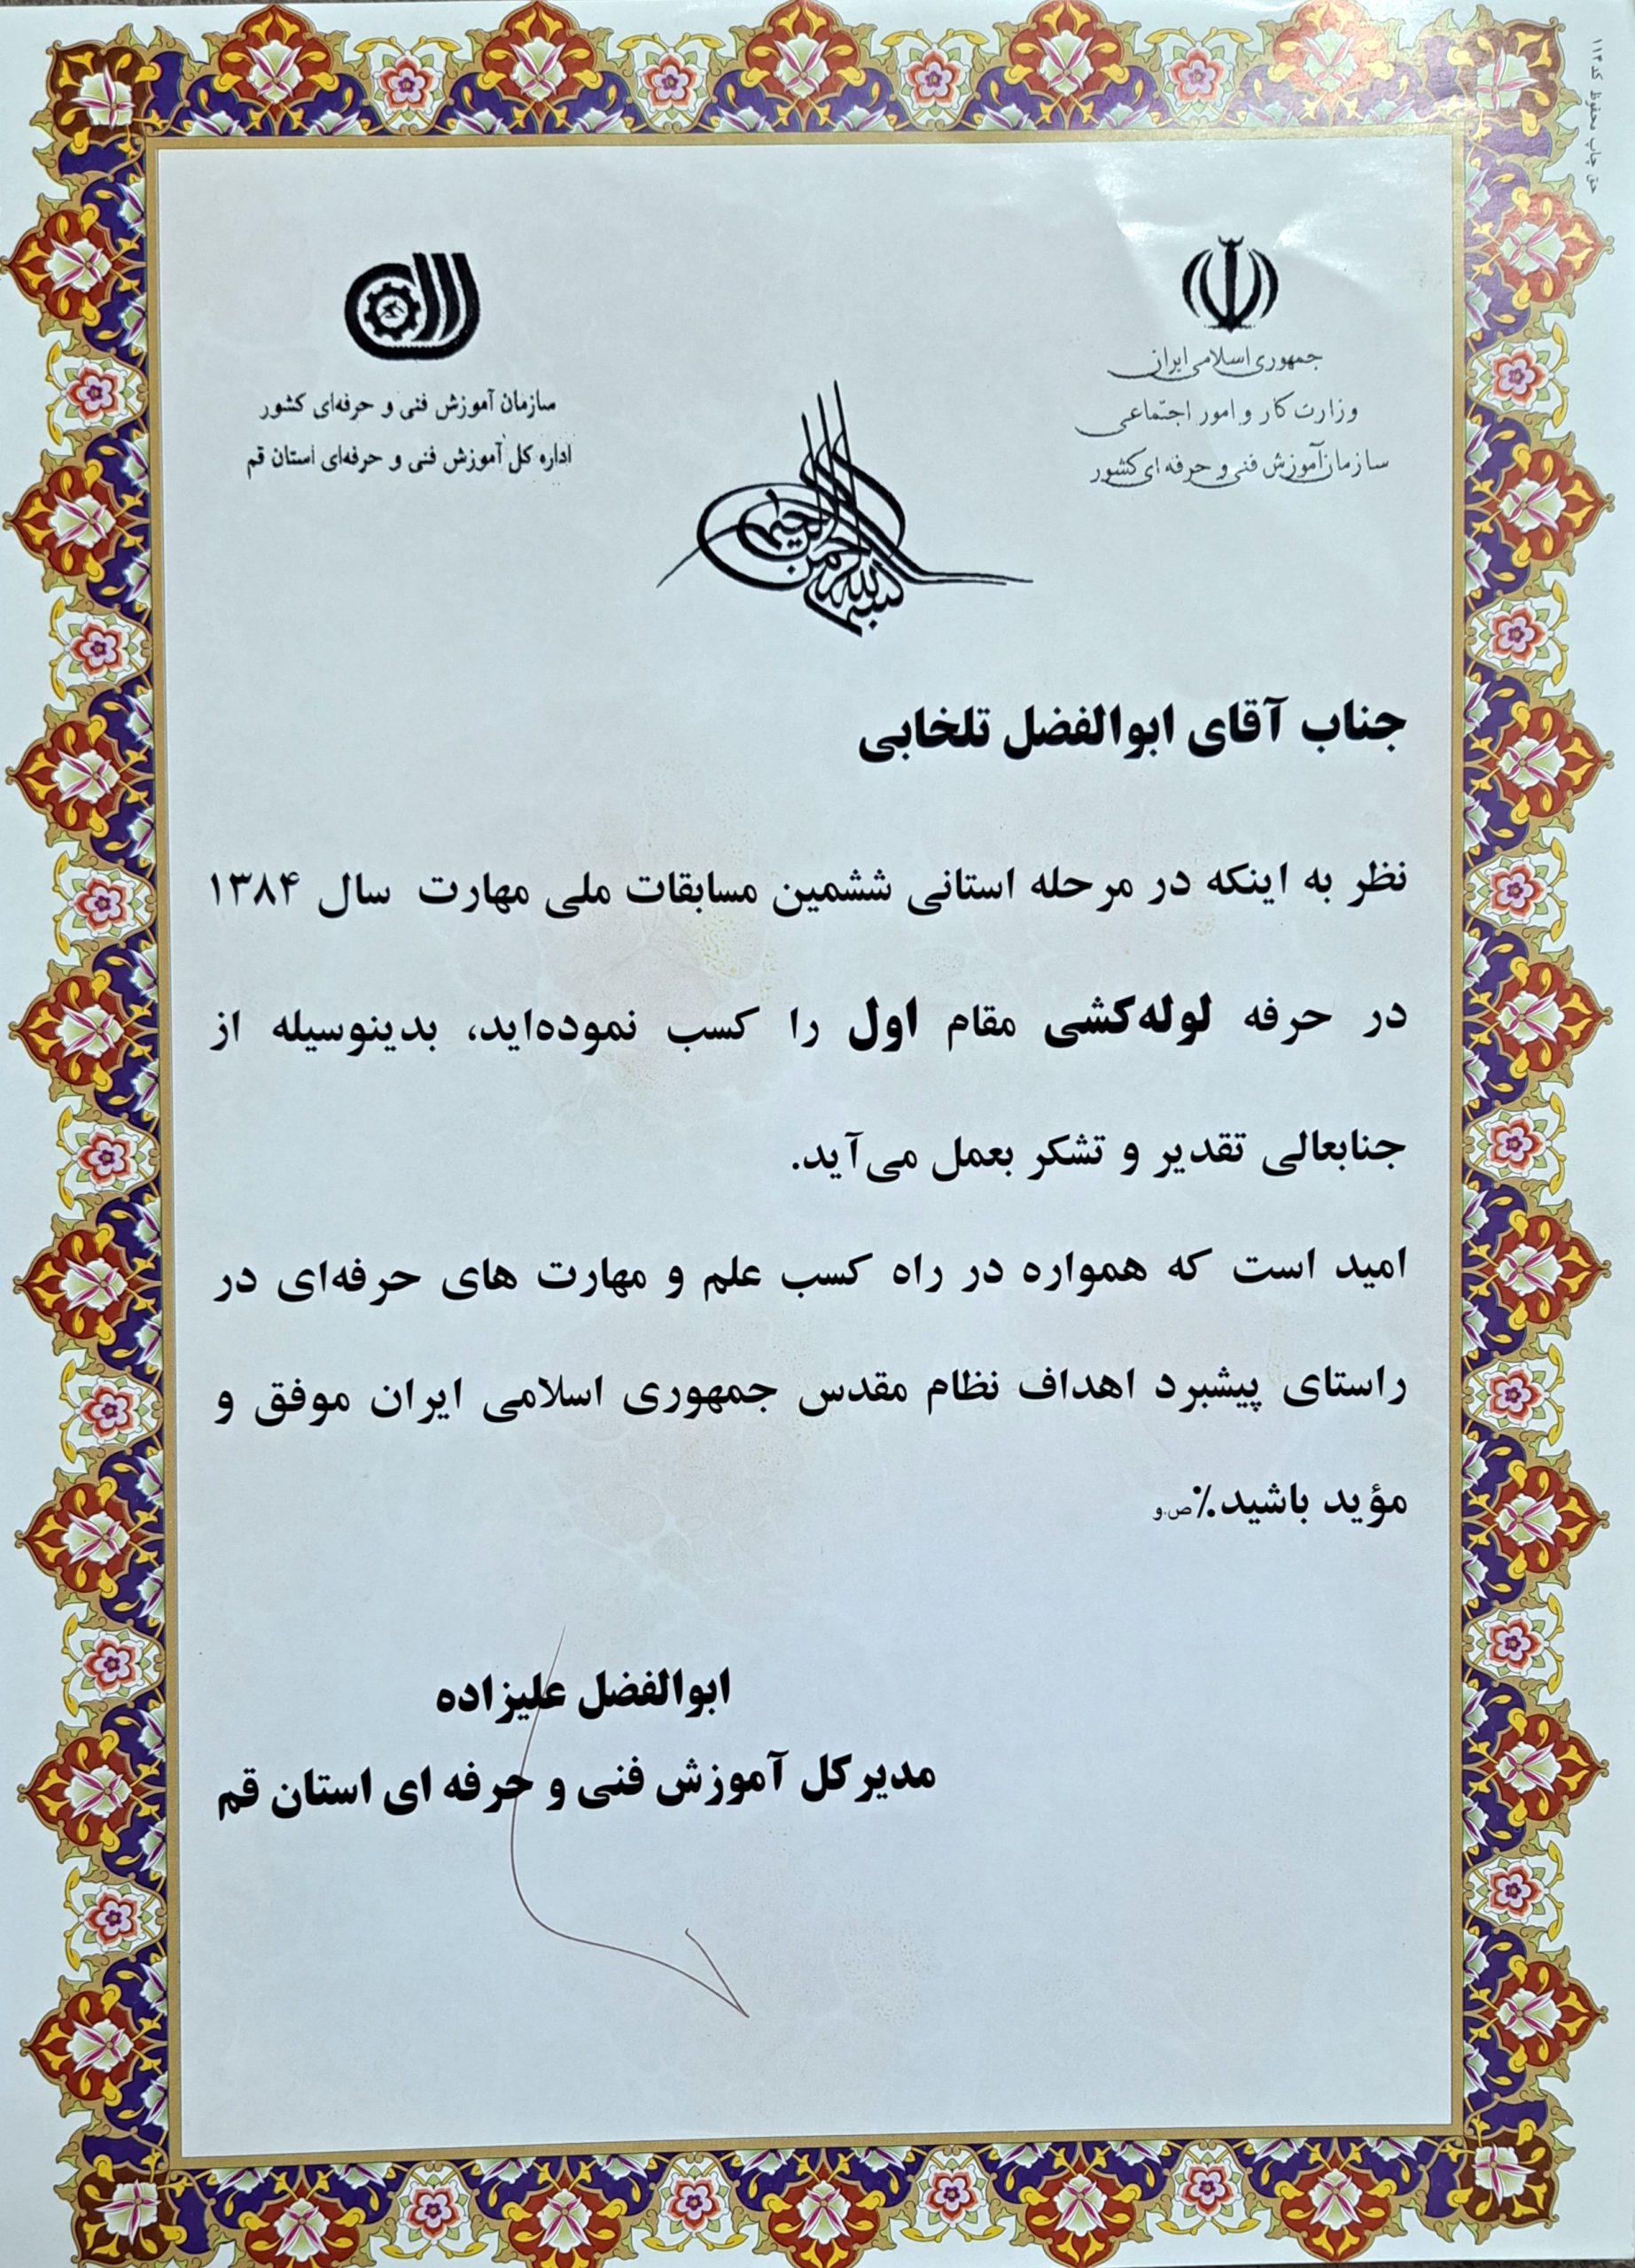 حق چاپ محفوظ کد ۱۱۳
جمهوری اسلامی ایران
وزارت کار و امور اجتماعی
سازمان آموزش فنی و حرفه ای کشور
سازمان آموزش فنی و حرفه‌ای کشور
اداره کل آموزش فنی و حرفه‌ای استان قم
بسم الله الرحمن الرحیم
جناب آقای ابوالفضل تلخابی
نظر به اینکه در مرحله استانی ششمین مسابقات ملی مهارت سال ۱۳۸۴
در حرفه لوله‌کشی مقام اول را کسب نموده‌اید، بدینوسیله از
جنابعالی تقدیر و تشکر بعمل می‌آید.
امید است که همواره در راه کسب علم و مهارت های حرفه‌ای در
راستای پیشبرد اهداف نظام مقدس جمهوری اسلامی ایران موفق و
مؤید باشید٪ص.و
ابوالفضل علیزاده
مدیرکل آموزش فنی و حرفه ای استان قم